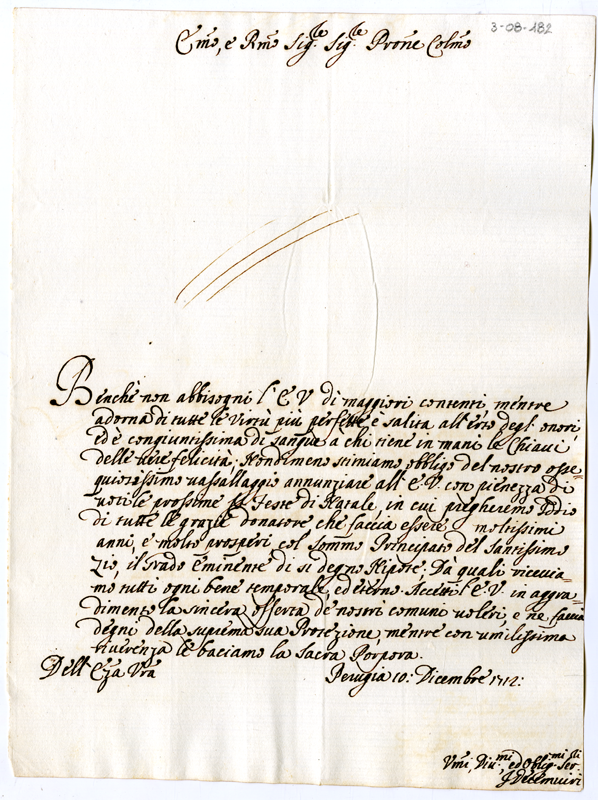 3-08-182
Em̃o, e Rm̃o Sig.re Sig.re Prone Colmo
Benchè non abbisogni l'E V di maggiori contenti, mentre
adorna di tutte le Virtù più perfette è salita all'erto degl'onori
ed è congiuntissima di sangue a chi tiene in mani le Chiavi
delle vere felicità; Nondimeno stimiamo obligo del nostro osse=
quiosissimo vassallaggio annunziare all'E.V. con pienezza di
voti le prossime Feste di Natale, in cui pregheremo Iddio
di tutte le grazie donatore che faccia essere moltissimi
anni, e molto prosperi col sommo Principato del Santissimo
Zio, il Grado eminente di sì degno Nipote. Da quali ricevia=
mo tutti ogni bene temporale, ed eterno. Accetti l'E.V. in aggra=
dimento la sincera offerta de nostri comuni voleri, e ne faccia
degni della suprema sua Protezione mentre con umilissima
riverenza le baciamo la Sacra Porpora.
Dell'Eza Vra Perugia 10: Dicembre 1712:
Vmi, Diu.mi ed Oblig.mi Ser.li
J Decemviri